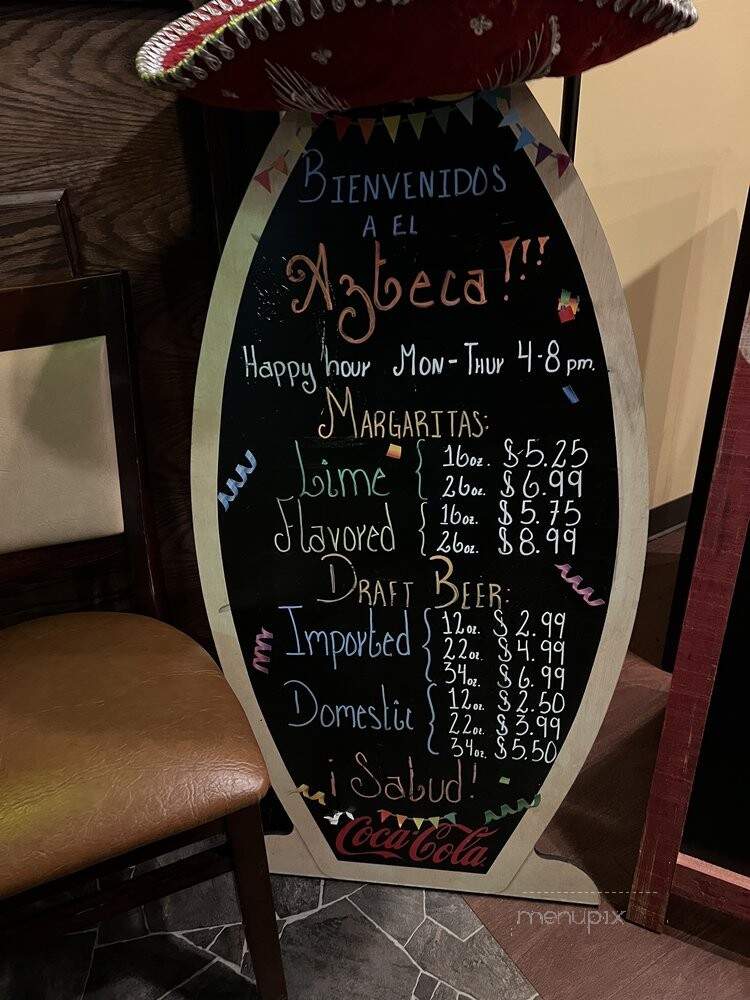 BIENVENIDOS
A EL
Azteca!!!
Happy hour MON-THUR 4-8 pm.
MARGARITAS:
Lime { 16oz. $5.25
26oz. $6.99
Flavored { 16oz. $5.75
26oz. $8.99
DRAFT BEER:
Imported { 12oz. $2.99
22oz. $4.99
34oz. $6.99
Domestic { 12oz. $2.50
22oz. $3.99
34oz. $5.50
¡Salud!
Coca-Cola
menupix